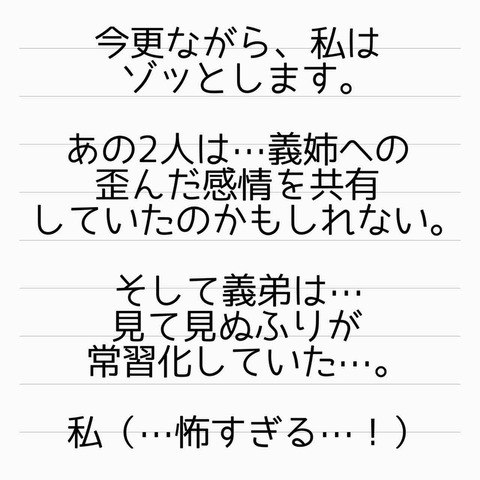 今更ながら、私は
ゾッとします。
あの2人は…義姉への
歪んだ感情を共有
していたのかもしれない。
そして義弟は…
見て見ぬふりが
常習化していた…。
私（…怖すぎる…！）